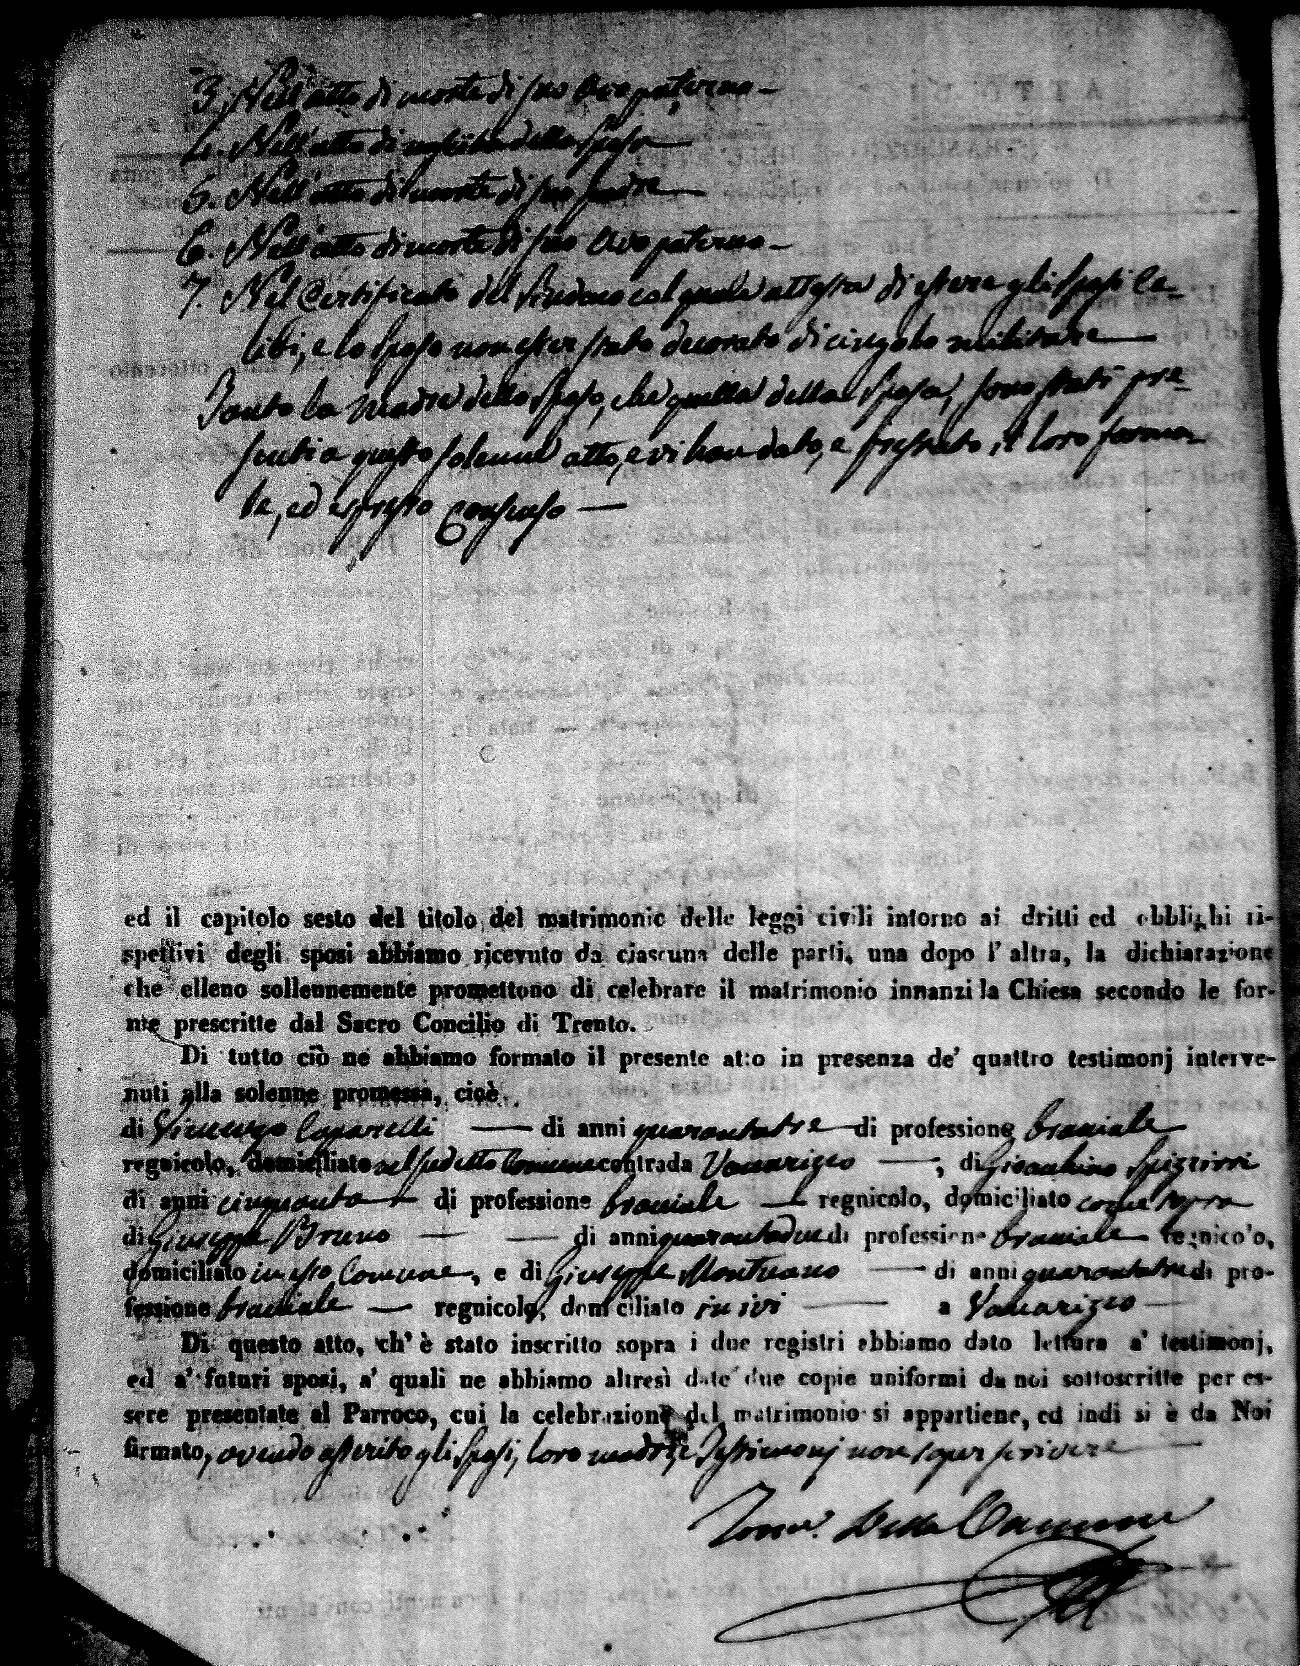 3. Nell'atto di morte di suo Avo paterno —
4. Nell'atto di nascita della Sposa —
5. Nell'atto di morte di suo padre —
6. Nell'atto di morte di suo Avo paterno —
7. Nel Certificato del Sindaco col quale attesta di essere gli Sposi ce-
libi, e lo Sposo non esser stato decorato di cingolo militare —
Tanto la madre dello Sposo, che quella della Sposa, sono stati pre-
senti a questo solenne atto, e vi han dato, e prestato, il loro forma-
le, ed espresso Consenso —
ed il capitolo sesto del titolo del matrimonio delle leggi civili intorno ai dritti ed obblighi ri-
spettivi degli sposi abbiamo ricevuto da ciascuna delle parti, una dopo l'altra, la dichiarazione
che elleno sollennemente promettono di celebrare il matrimonio innanzi la Chiesa secondo le for-
me prescritte dal Sacro Concilio di Trento.
Di tutto ciò ne abbiamo formato il presente atto in presenza de' quattro testimonj interve-
nuti alla solenne promessa, cioè
di Vincenzo Caparelli — di anni quarantatre di professione bracciale
regnicolo, domiciliato nel sudetto Comune contrada Vaccarizzo —, di Gioacchino
di anni cinquanta — di professione bracciale — regnicolo, domiciliato come sopra
di Giuseppe Bruno — — di anni quarantadue di professione bracciale — regnicolo,
domiciliato in esso Comune, e di Giuseppe Montuano — di anni quarantatre di pro-
fessione bracciale — regnicolo, domiciliato in ivi — a Vaccarizzo —
Di questo atto, ch'è stato inscritto sopra i due registri abbiamo dato lettura a' testimonj,
ed a' futuri sposi, a' quali ne abbiamo altresì date due copie uniformi da noi sottoscritte per es-
sere presentate al Parroco, cui la celebrazione del matrimonio si appartiene, ed indi si è da Noi
firmato, avendo asserito gli Sposi, loro madri, e Testimonj non saper scrivere —